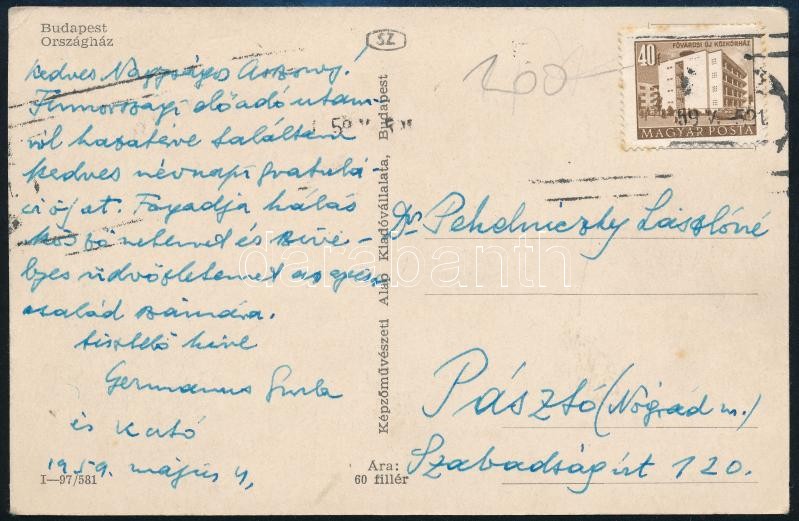 Budapest
Országház
SZ
Kedves Nagyságos Asszony!
Finnországi előadó utam-
ról hazatérve találtam
kedves névnapi gratulá-
cióját. Fogadja hálás
köszönetemet és szíve-
lyes üdvözletemet az egész
család számára.
tisztelő híve
Germanus Gyula
és Kató
1959. május 4,
I—97/581
Képzőművészeti Alap Kiadóvállalata, Budapest
Ara:
60 fillér
200
40
FŐVÁROSI ÚJ KÓZKÓRHÁZ
MAGYAR POSTA
59 V.
59 V.
Dr Pehelniczky Lászlóné
Pásztó (Nógrád m.)
Szabadság út 120.
darabanth